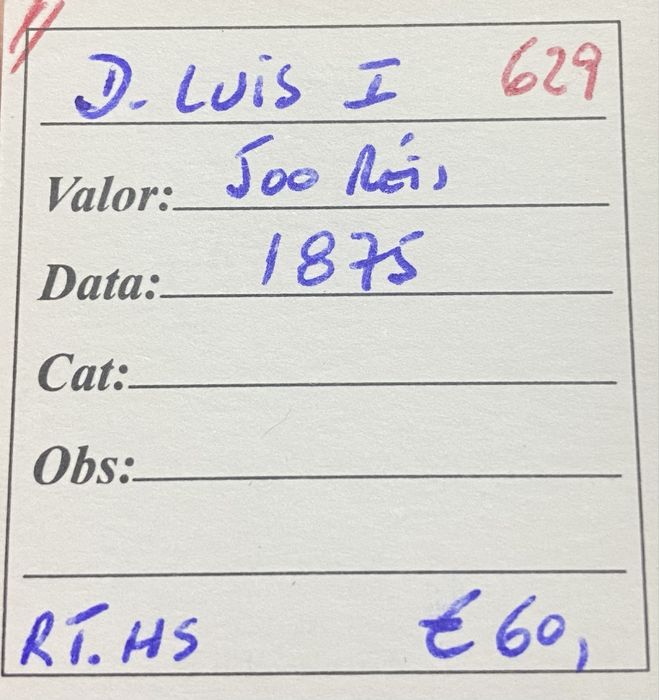 D. Luis I 629
Valor: 500 Réis
Data: 1875
Cat:
Obs:
RT. HS € 60,